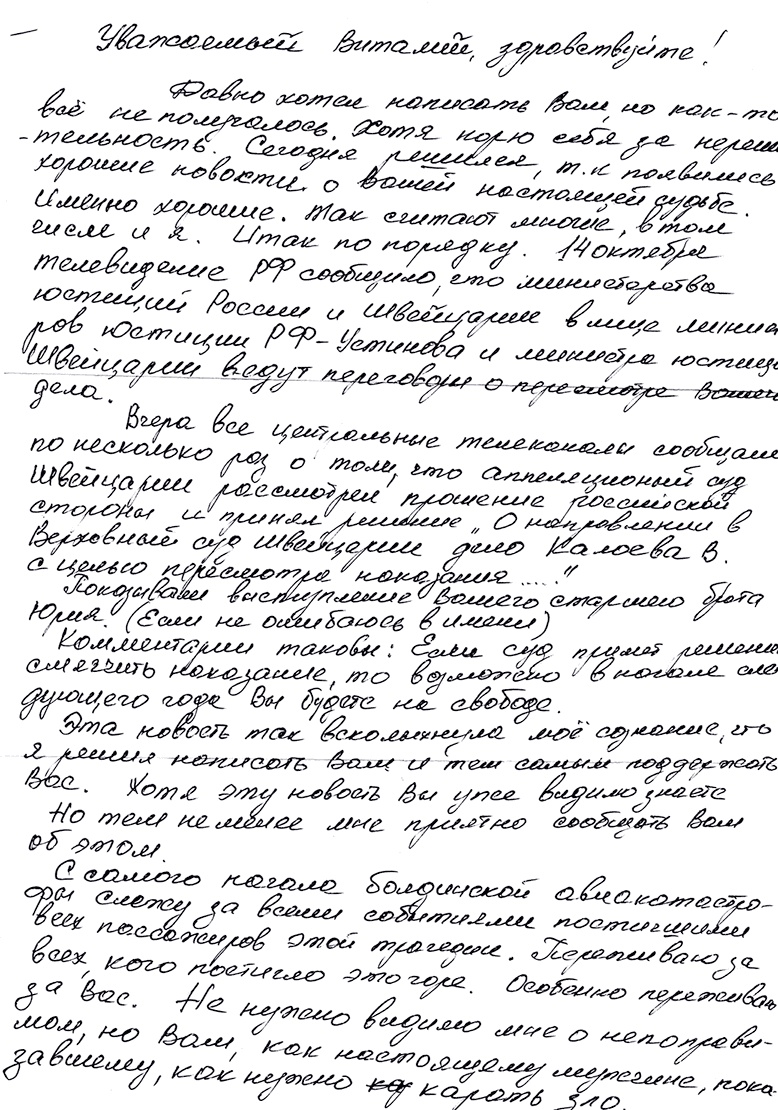 Уважаемый Виталий, здравствуйте!
Давно хотел написать Вам, но как-то
всё не получалось. Хотя корю себя за нереши
-тельность. Сегодня решился, т.к появились
хорошие новости о Вашей настоящей судьбе.
Именно хорошие. Так считают многие, в том
числе и я. Итак по порядку. 14 октября
телевидение РФ сообщило, что министерства
юстиций России и Швейцарии в лице минист
ров юстиции РФ-Устинова и министра юстиции
Швейцарии ведут переговоры о пересмотре Вашего
дела.
Вчера все центральные телеканалы сообщали
по несколько раз о том, что аппеляционый суд
Швейцарии рассмотрел прошение российской
стороны и принял решение „О направлении в
Верховный суд Швейцарии дело Калоева В.
с целью пересмотра наказания ....."
Показывали выступление Вашего старшего брата
Юрия. (Если не ошибаюсь в имени)
Комментарии таковы: Если суд примет решение
смягчить наказание, то возможно в начале сле
дующего года Вы будете на свободе.
Эта новость так всколыхнула моё сознание, что
я решил написать Вам и тем самым поддержать
Вас. Хотя эту новость Вы уже видимо знаете
Но тем не менее мне приятно сообщать Вам
об этом.
С самого начала боддинской авиакатастро-
фы слежу за всеми событиями постигшими
всех пассажиров этой трагедии. Переживаю за
всех, кого постигло это горе. Особенно переживаю
за Вас. Не нужно видимо мне о непоправи-
мом, но Вам, как настоящему мужчине, пока-
завшему, как нужно карать зло.